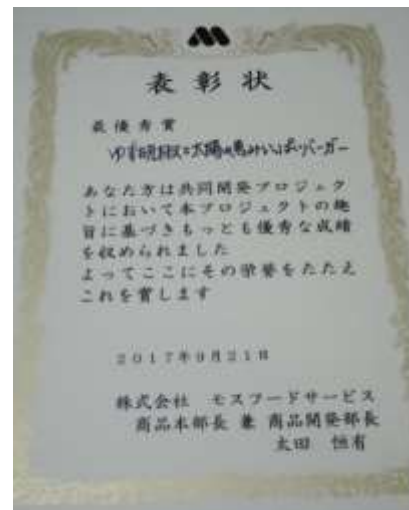 表彰状
最優秀賞
ゆず胡椒と太陽の恵みいっぱいバーガー
あなた方は共同開発プロジェク
トにおいて本プロジェクトの趣
旨に基づきもっとも優秀な成績
を収められました
よってここにその栄誉をたたえ
これを賞します
2017年9月21日
株式会社 モスフードサービス
商品本部長 兼 商品開発部長
太田 恒有